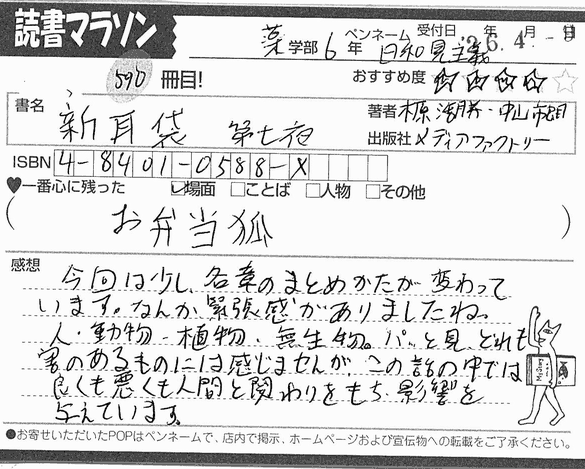 読書マラソン
薬学部6年 ペンネーム 日和見主義 受付日 '26.4.-
590冊目! おすすめ度 ☆☆☆☆☆
書名 新耳袋 第七夜
著者 木原浩勝・中山市朗
出版社 メディアファクトリー
ISBN 4-8401-0588-X
♥一番心に残った ☑場面 □ことば □人物 □その他
(お弁当狐)
感想
今回は少し、各章のまとめかたが変わって
います。なんか緊張感がありましたね。
人・動物・植物・無生物。パッと見、どれも
害のあるものには感じませんが、この話の中では
良くも悪くも人間と関わりをもち、影響を
与えています。
●お寄せいただいたPOPはペンネームで、店内で掲示、ホームページおよび宣伝物への転載をご了承ください。